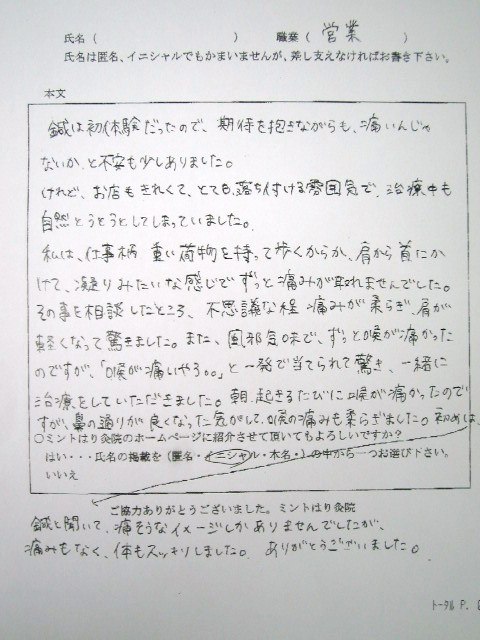 氏名（　　　　　　　　　　　）　職業（ 営業 ）
氏名は匿名、イニシャルでもかまいませんが、差し支えなければお書き下さい。
本文
鍼は初体験だったので、期待を抱きながらも、痛いんじゃ
ないか、と不安も少しありました。
けれど、お店もきれくて、とても落ち付ける雰囲気で、治療中も
自然とうとうとしてしまっていました。
私は、仕事柄 重い荷物を持って歩くからか、肩から首にか
けて、凝りみたいな感じでずっと痛みが取れませんでした。
その事を相談したところ、不思議な程 痛みが柔らぎ、肩が
軽くなって驚きました。また、風邪気味で、ずっと喉が痛かった
のですが、「喉が痛いやろ。。」と一発で当てられて驚き、一緒に
治療をしていただきました。朝、起きるたびに喉が痛かったので
すが、鼻の通りが良くなった気がして、喉の痛みも柔らぎました。初めは、
○ミントはり灸院のホームページに紹介させて頂いてもよろしいですか？
はい・・・氏名の掲載を（匿名・イニシャル・本名・）の中から一つお選び下さい。
いいえ
ご協力ありがとうございました。ミントはり灸院
鍼と聞いて、痛そうなイメージしかありませんでしたが、
痛みもなく、体もスッキリしました。ありがとうございました。